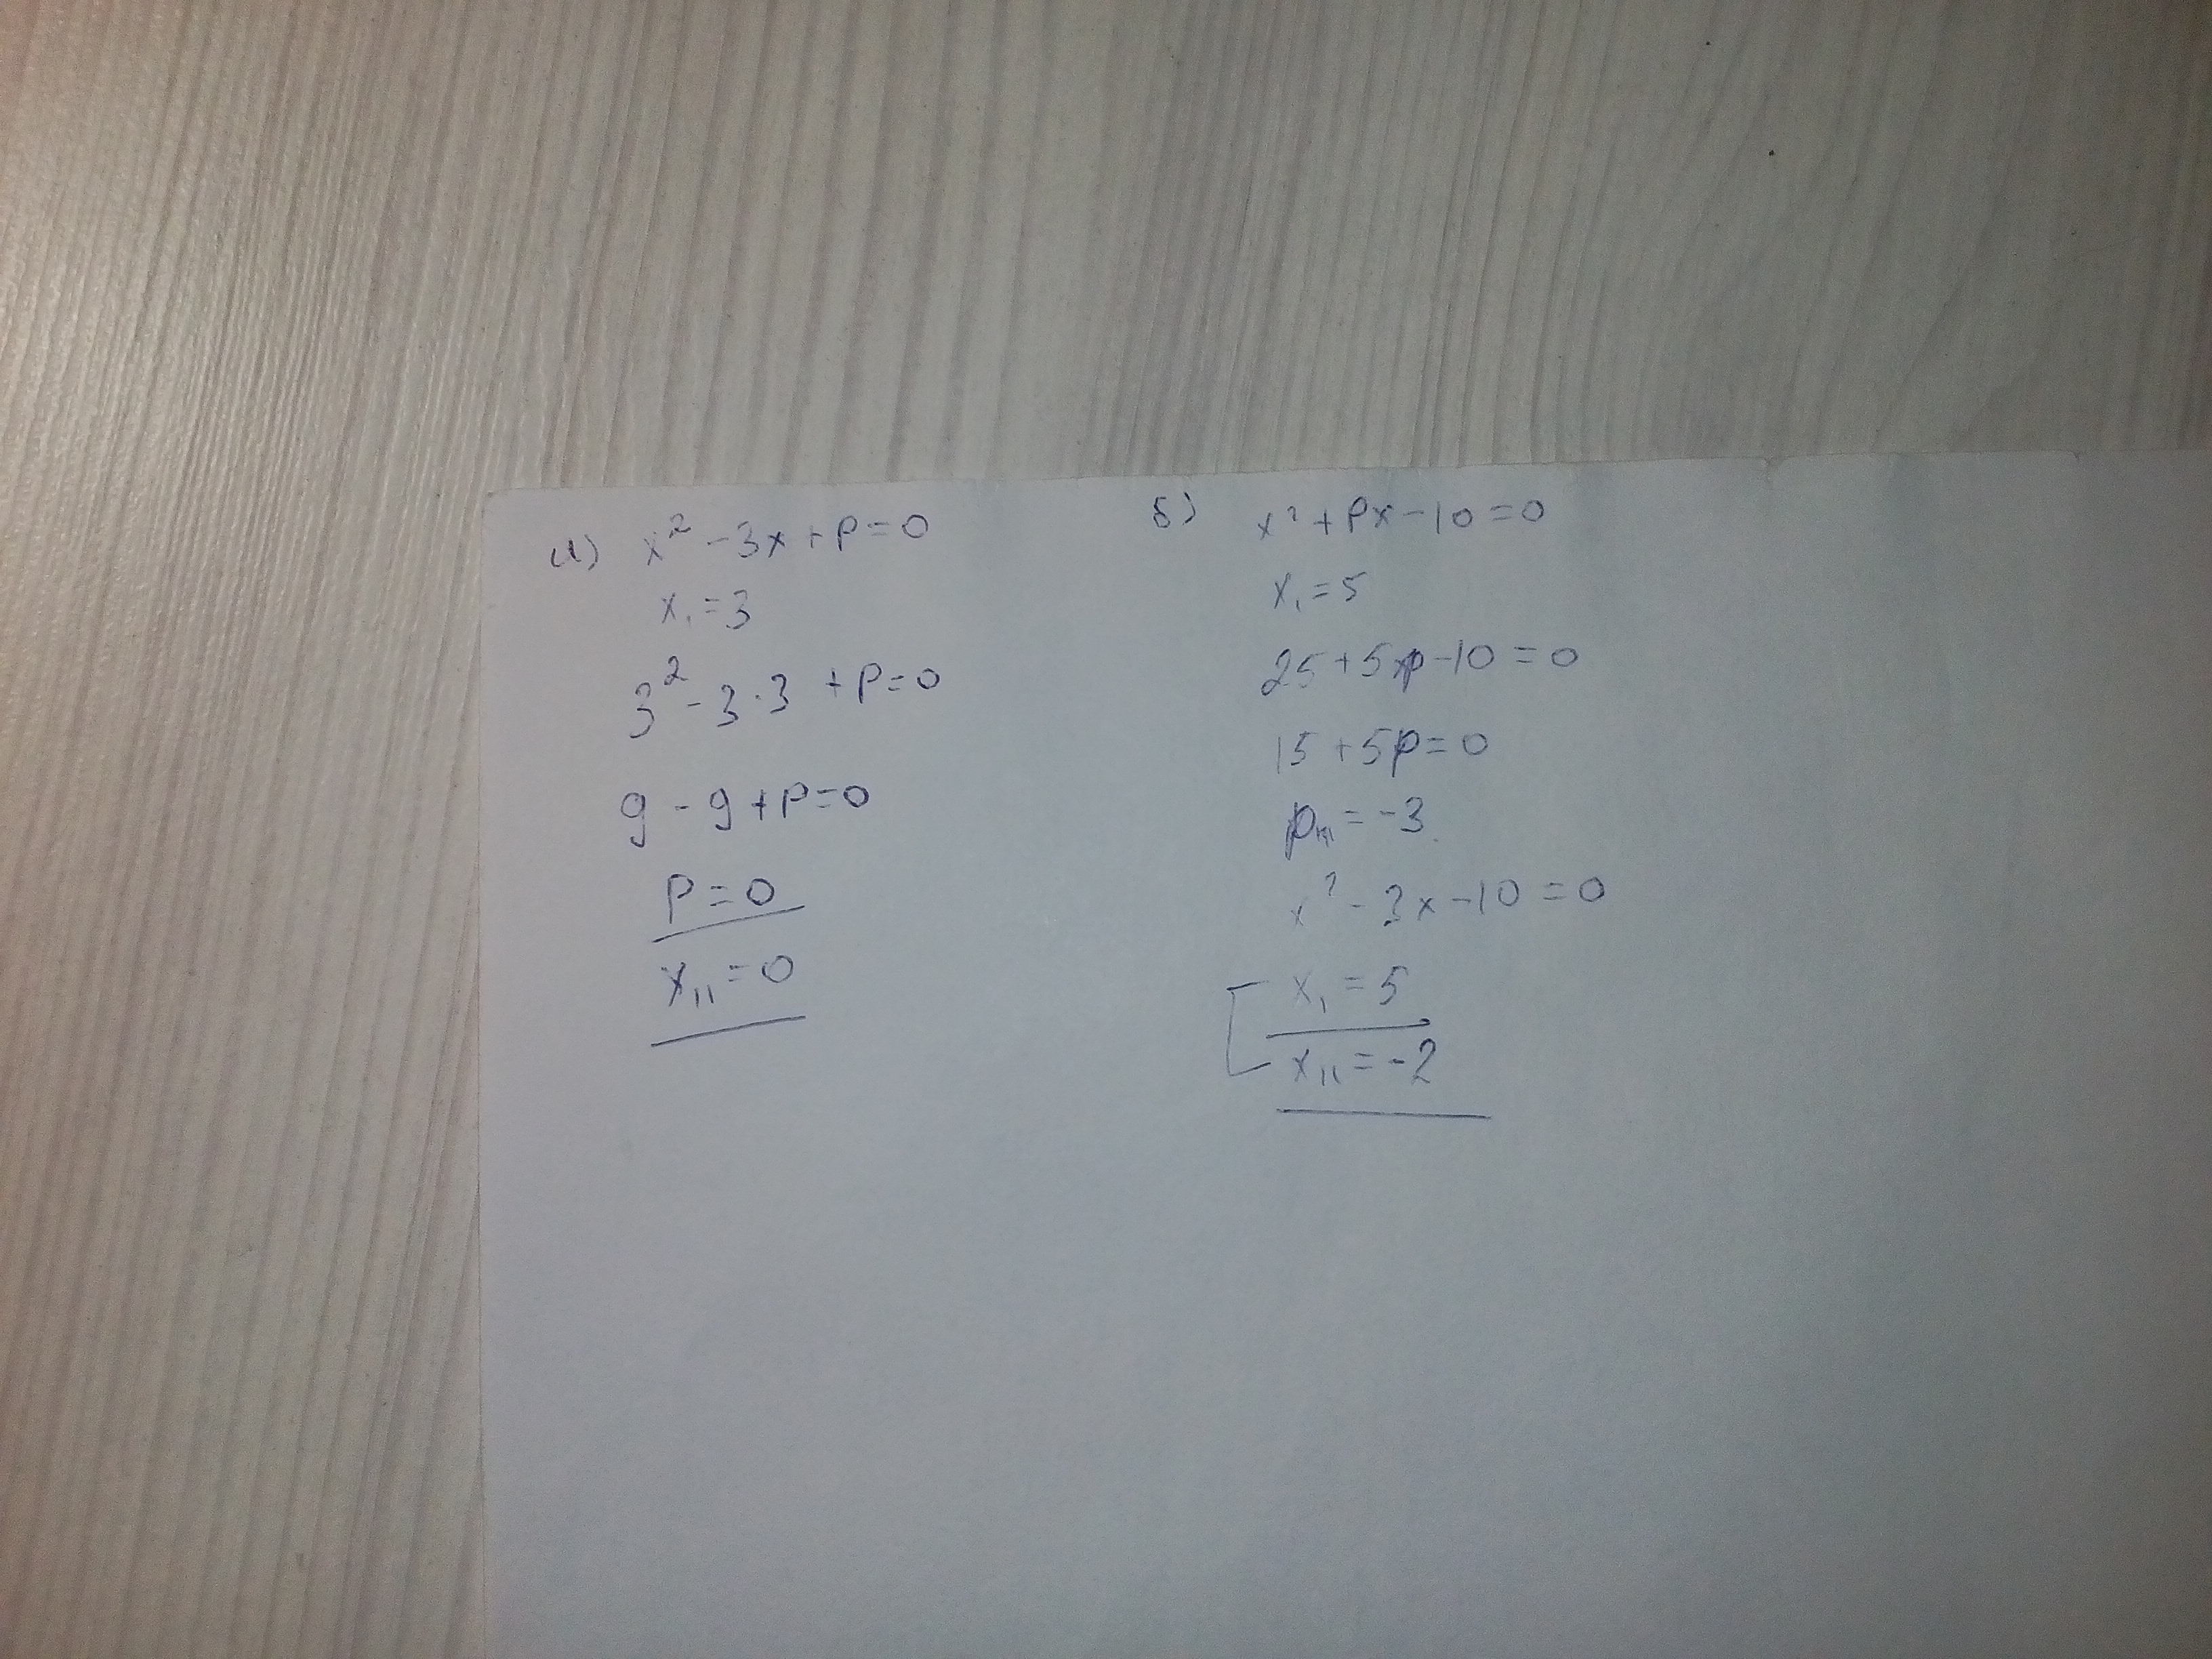 а) x² - 3x + p = 0
x₁ = 3
3² - 3·3 + p = 0
9 - 9 + p = 0
p = 0
x₁₁ = 0
б) x² + px - 10 = 0
x₁ = 5
25 + 5p - 10 = 0
15 + 5p = 0
p = -3
x² - 3x - 10 = 0
x₁ = 5
x₁₁ = -2